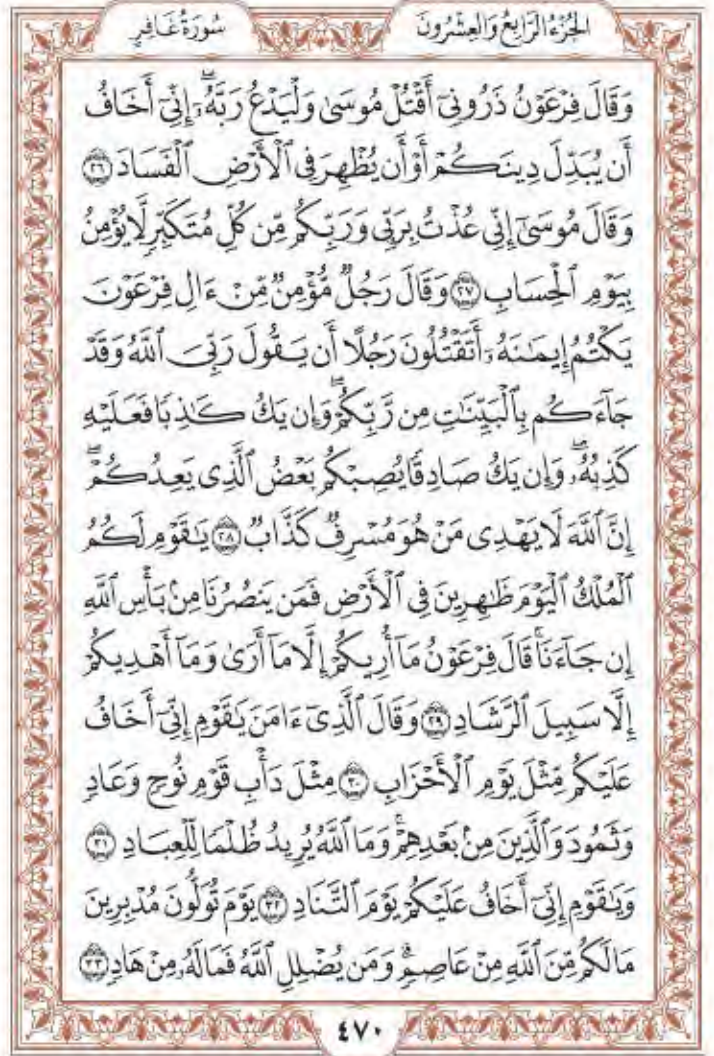 الجُزْءُ الرَّابِعُ وَالعِشْرُونَ
سُورَةُ غَافِرٍ
وَقَالَ فِرْعَوْنُ ذَرُونِيٓ أَقْتُلْ مُوسَىٰ وَلْيَدْعُ رَبَّهُۥٓۖ إِنِّيٓ أَخَافُ
أَن يُبَدِّلَ دِينَكُمْ أَوْ أَن يُظْهِرَ فِي ٱلْأَرْضِ ٱلْفَسَادَ ٢٦
وَقَالَ مُوسَىٰٓ إِنِّي عُذْتُ بِرَبِّي وَرَبِّكُم مِّن كُلِّ مُتَكَبِّرٍ لَّا يُؤْمِنُ
بِيَوْمِ ٱلْحِسَابِ ٢٧ وَقَالَ رَجُلٌ مُّؤْمِنٌ مِّنْ ءَالِ فِرْعَوْنَ
يَكْتُمُ إِيمَـٰنَهُۥٓ أَتَقْتُلُونَ رَجُلًا أَن يَقُولَ رَبِّيَ ٱللَّهُ وَقَدْ
جَآءَكُم بِٱلْبَيِّنَـٰتِ مِن رَّبِّكُمْۖ وَإِن يَكُ كَـٰذِبًا فَعَلَيْهِ
كَذِبُهُۥۖ وَإِن يَكُ صَادِقًا يُصِبْكُم بَعْضُ ٱلَّذِي يَعِدُكُمْۖ
إِنَّ ٱللَّهَ لَا يَهْدِي مَنْ هُوَ مُسْرِفٌ كَذَّابٌ ٢٨ يَـٰقَوْمِ لَكُمُ
ٱلْمُلْكُ ٱلْيَوْمَ ظَـٰهِرِينَ فِي ٱلْأَرْضِ فَمَن يَنصُرُنَا مِنۢ بَأْسِ ٱللَّهِ
إِن جَآءَنَاۚ قَالَ فِرْعَوْنُ مَآ أُرِيكُمْ إِلَّا مَآ أَرَىٰ وَمَآ أَهْدِيكُمْ
إِلَّا سَبِيلَ ٱلرَّشَادِ ٢٩ وَقَالَ ٱلَّذِيٓ ءَامَنَ يَـٰقَوْمِ إِنِّيٓ أَخَافُ
عَلَيْكُم مِّثْلَ يَوْمِ ٱلْأَحْزَابِ ٣٠ مِثْلَ دَأْبِ قَوْمِ نُوحٍ وَعَادٍ
وَثَمُودَ وَٱلَّذِينَ مِنۢ بَعْدِهِمْۚ وَمَا ٱللَّهُ يُرِيدُ ظُلْمًا لِّلْعِبَادِ ٣١
وَيَـٰقَوْمِ إِنِّيٓ أَخَافُ عَلَيْكُمْ يَوْمَ ٱلتَّنَادِ ٣٢ يَوْمَ تُوَلُّونَ مُدْبِرِينَ
مَا لَكُم مِّنَ ٱللَّهِ مِنْ عَاصِمٍۗ وَمَن يُضْلِلِ ٱللَّهُ فَمَا لَهُۥ مِنْ هَادٍ ٣٣
٤٧٠